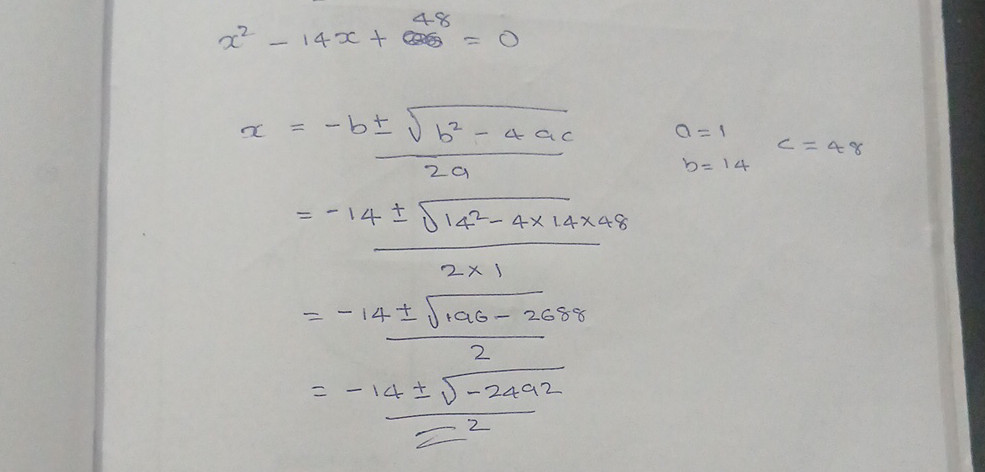 x² - 14x + 48 = 0
x = -b ± √b² - 4ac
2a
a = 1
b = 14
c = 48
= -14 ± √14² - 4 x 14 x 48
2 x 1
= -14 ± √196 - 2688
2
= -14 ± √-2492
2